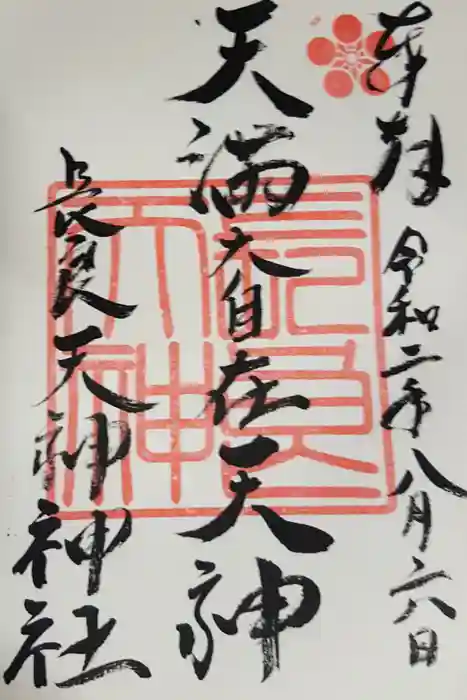 奉拝 令和二年八月六日
天満大自在天神
長良天神神社
長良天神